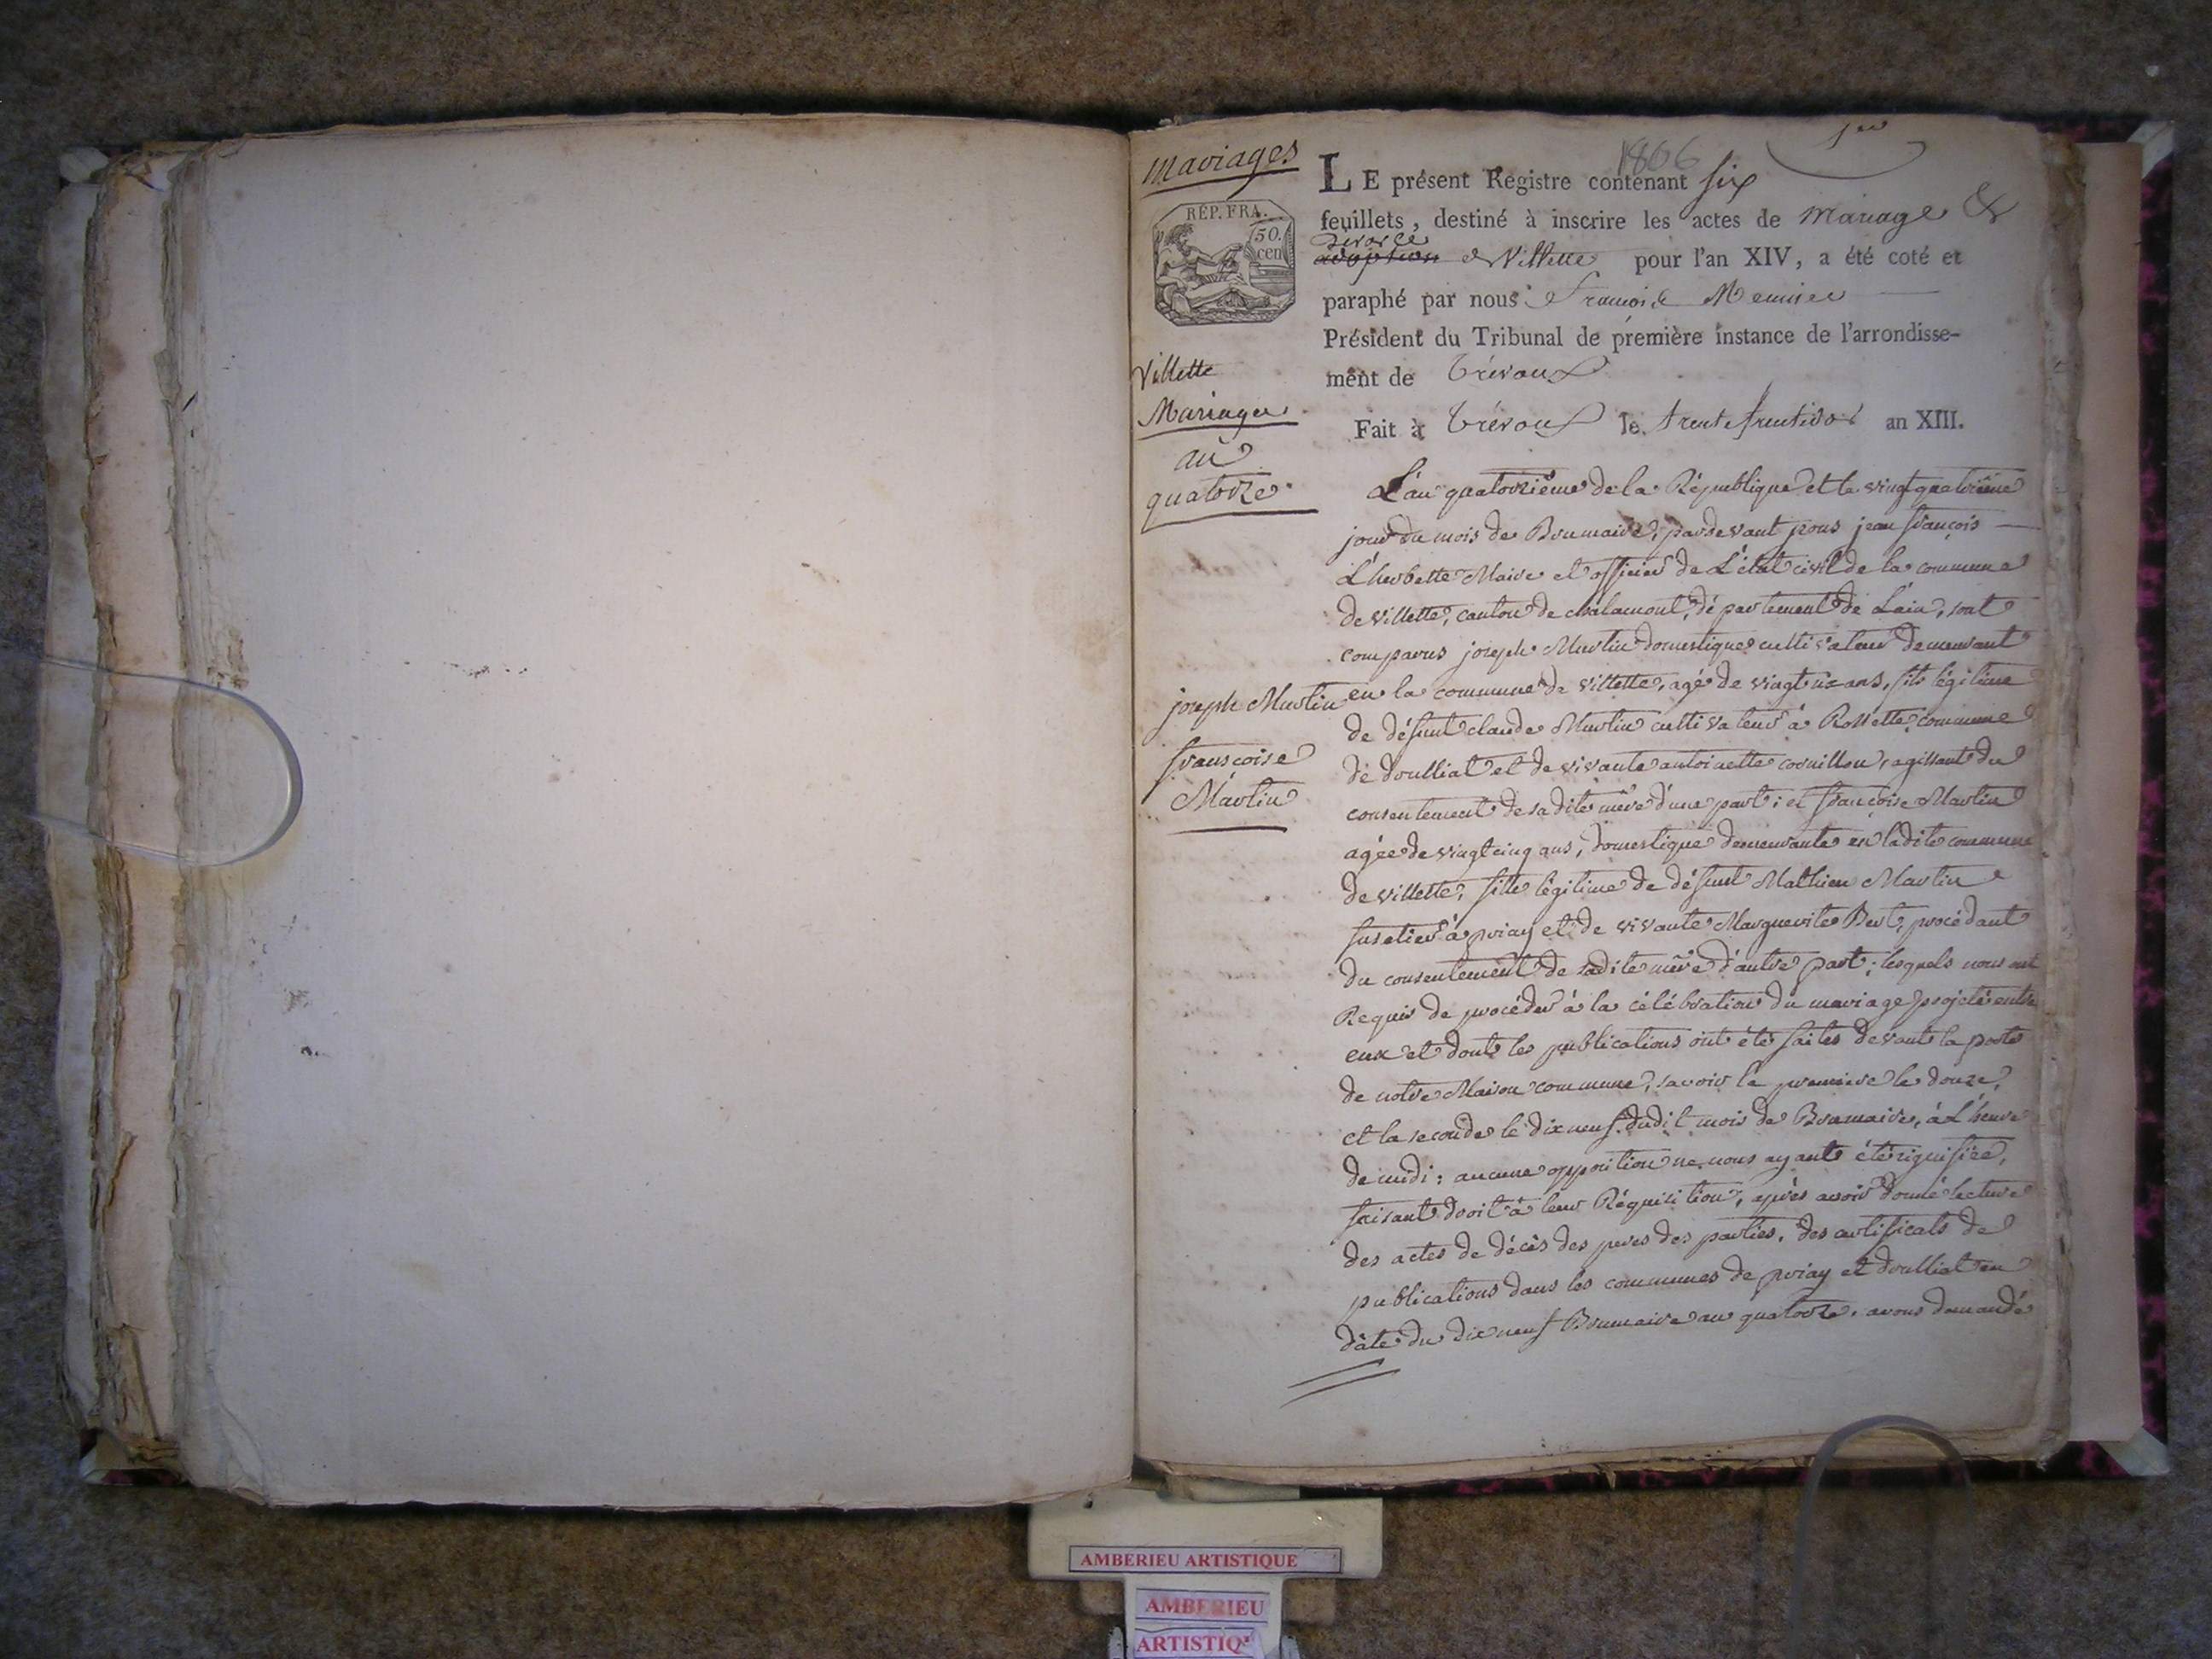 Mariages
1er
1806
RÉP. FRA.
50.
cen
LE présent Registre contenant six
feuillets, destiné à inscrire les actes de Mariage &
divorce
adoption de Villette pour l'an XIV, a été coté et
paraphé par nous François Meunier
Président du Tribunal de première instance de l'arrondisse-
ment de Trévoux
Fait à Trévoux le trente fructidor an XIII.
Villette
Mariages
an
quatorze
L'an quatorzième de la République et le vingt quatrième
jour du mois de Brumaire, pardevant nous jean françois
L'herbette Maire et officier de L'état civil de la commune
de villette, canton de chalamont, département de L'ain, sont
comparus joseph Martin domestique cultivateur demeurant
en la commune de villette, agé de vingt ans, fils légitime
de défunt claude Martin cultivateur à Rossette commune
de douilliat et de vivante antoinette cornillon, agissant du
consentement de sadite mère d'une part; et françoise Martin
agée de vingt cinq ans, domestique demeurante en ladite commune
de villette, fille légitime de défunt Mathieu Martin
à priay et de vivante Marguerite Bert, procédant
du consentement de sadite mère d'autre part; lesquels nous ont
Requis de procéder à la célébration du mariage projeté entre
eux et dont les publications ont été faites devant la porte
de notre Maison commune, savoir la premiere le douze,
et la seconde le dix neuf dudit mois de Brumaire, à L'heure
de midi; aucune opposition ne nous ayant été signifiée,
faisant droit à leur Réquisition, après avoir donné lecture
des actes de décès des peres des parties, des certificats de
publications dans les communes de priay et douilliat en
date du dix neuf Brumaire an quatorze, avons demandé
joseph Martin
françoise
Martin
AMBERIEU ARTISTIQUE
AMBERIEU
ARTISTIQ